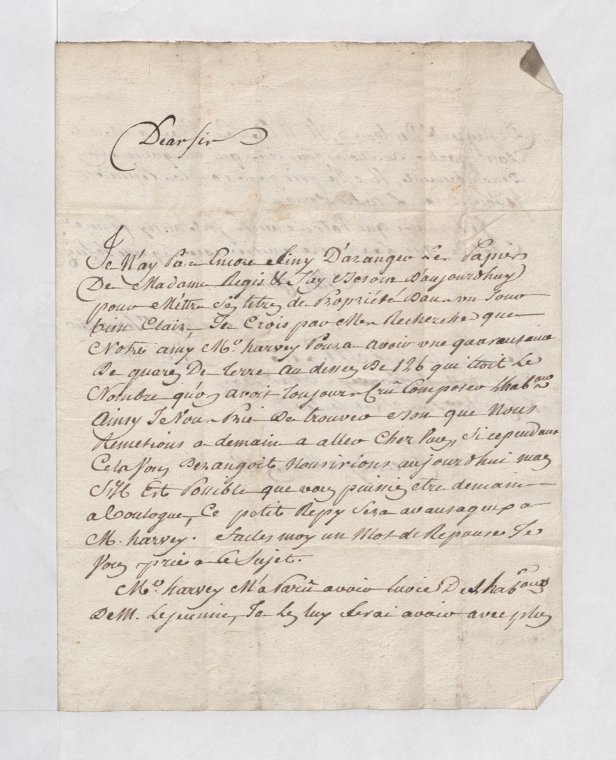 Dear sir
Je N'ay Pas Encore finy D'aranger Les Papiers
De Madame Regis & J'ay Besoin D'aujourdhuy
pour Mêtre Ses titres de Propriété Dans un Jour
bien Clair, Je Crois par Mes Recherches que
Notre amy Mr. harvey Poura avoir une quarantaine
De quarés De terre au dessus de 126 qui étoit Le
Nombre qu'on avoit toujours Crû Composer L'hab.on
ainsy Je Vous Prie De trouver bon que Nous
Remetions a demain a aller Chez Vous, Si cependant
Cela Vous Derangoit Nous irions aujourd'hui mais
S'il Est Possible que vous puissiés etre demain
a Boulogue, Ce petit Repy Sera avantageux a
M. harvey. faites moy un Mot de Reponse Je
Vous prie a Ce Sujet.
Mr. harvey M'a Parû avoir Envie De L'hab.on
De M. Lejeune, Je La luy ferai avoir avec plus